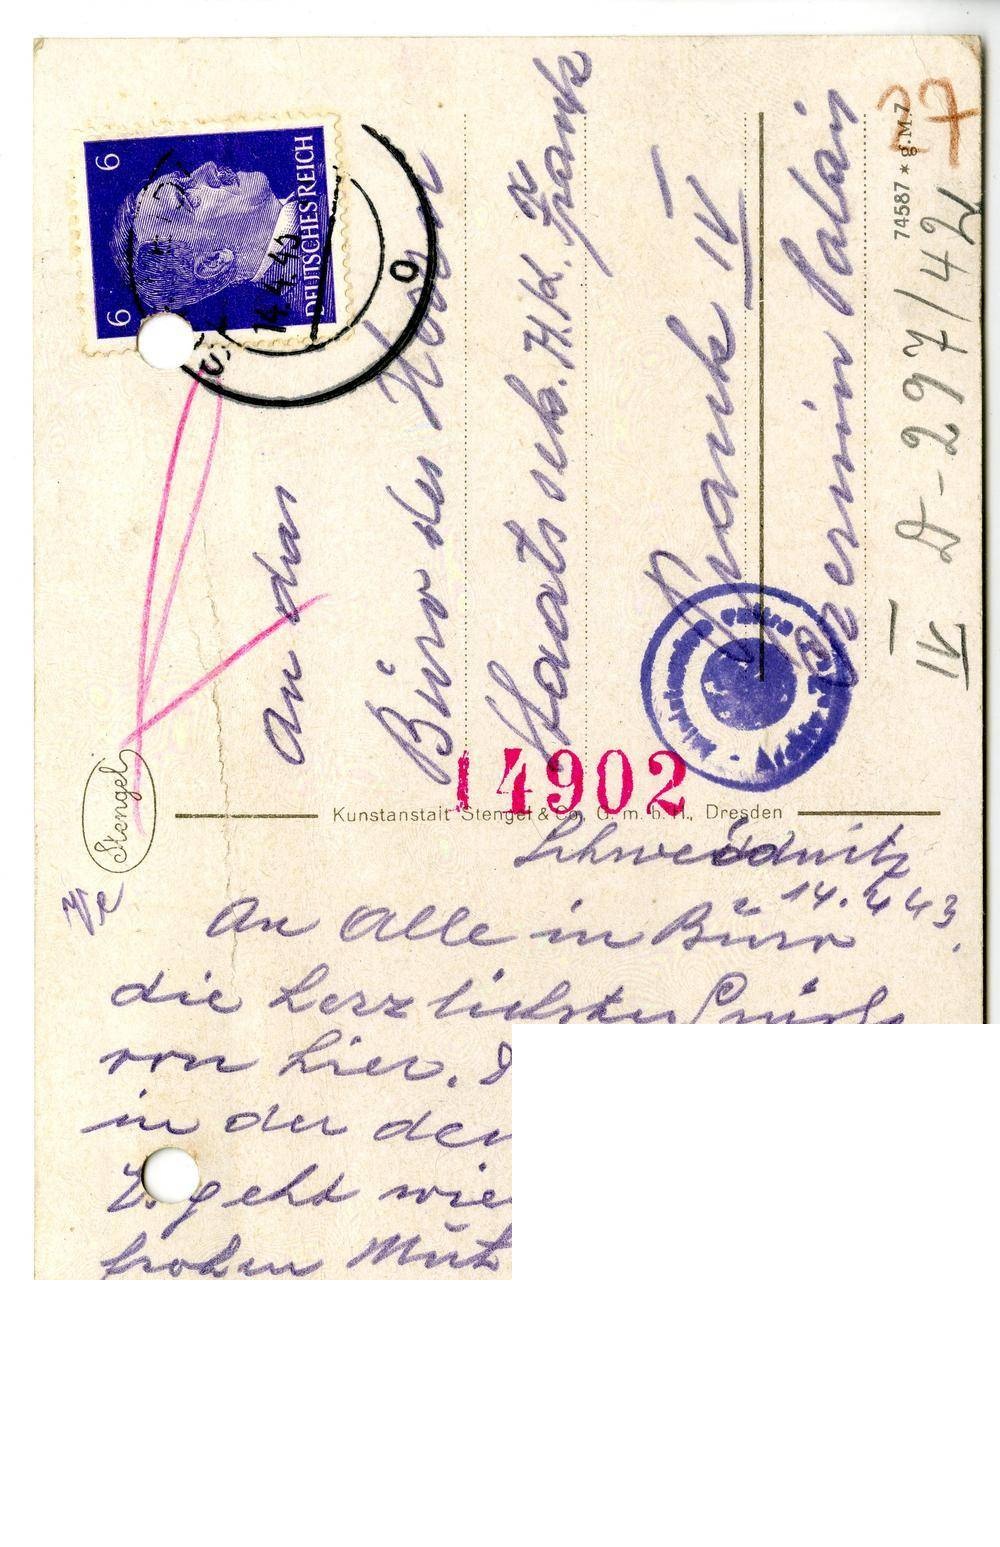 6
6
DEUTSCHES REICH
14.4.43
o
An das
Büro des Herrn
Staatssek. H.K. Frank
Prag IV
Czernin Palais
74587 * g. M. 7
IV D-297/42
14902
Stengel
Kunstanstalt Stengel & Co., G. m. b. H., Dresden
Schweidnitz
14. 4 43.
An Alle in Büro
die herzlichsten Grüße
von hier.
in der
E. geht wie
frohen Mut